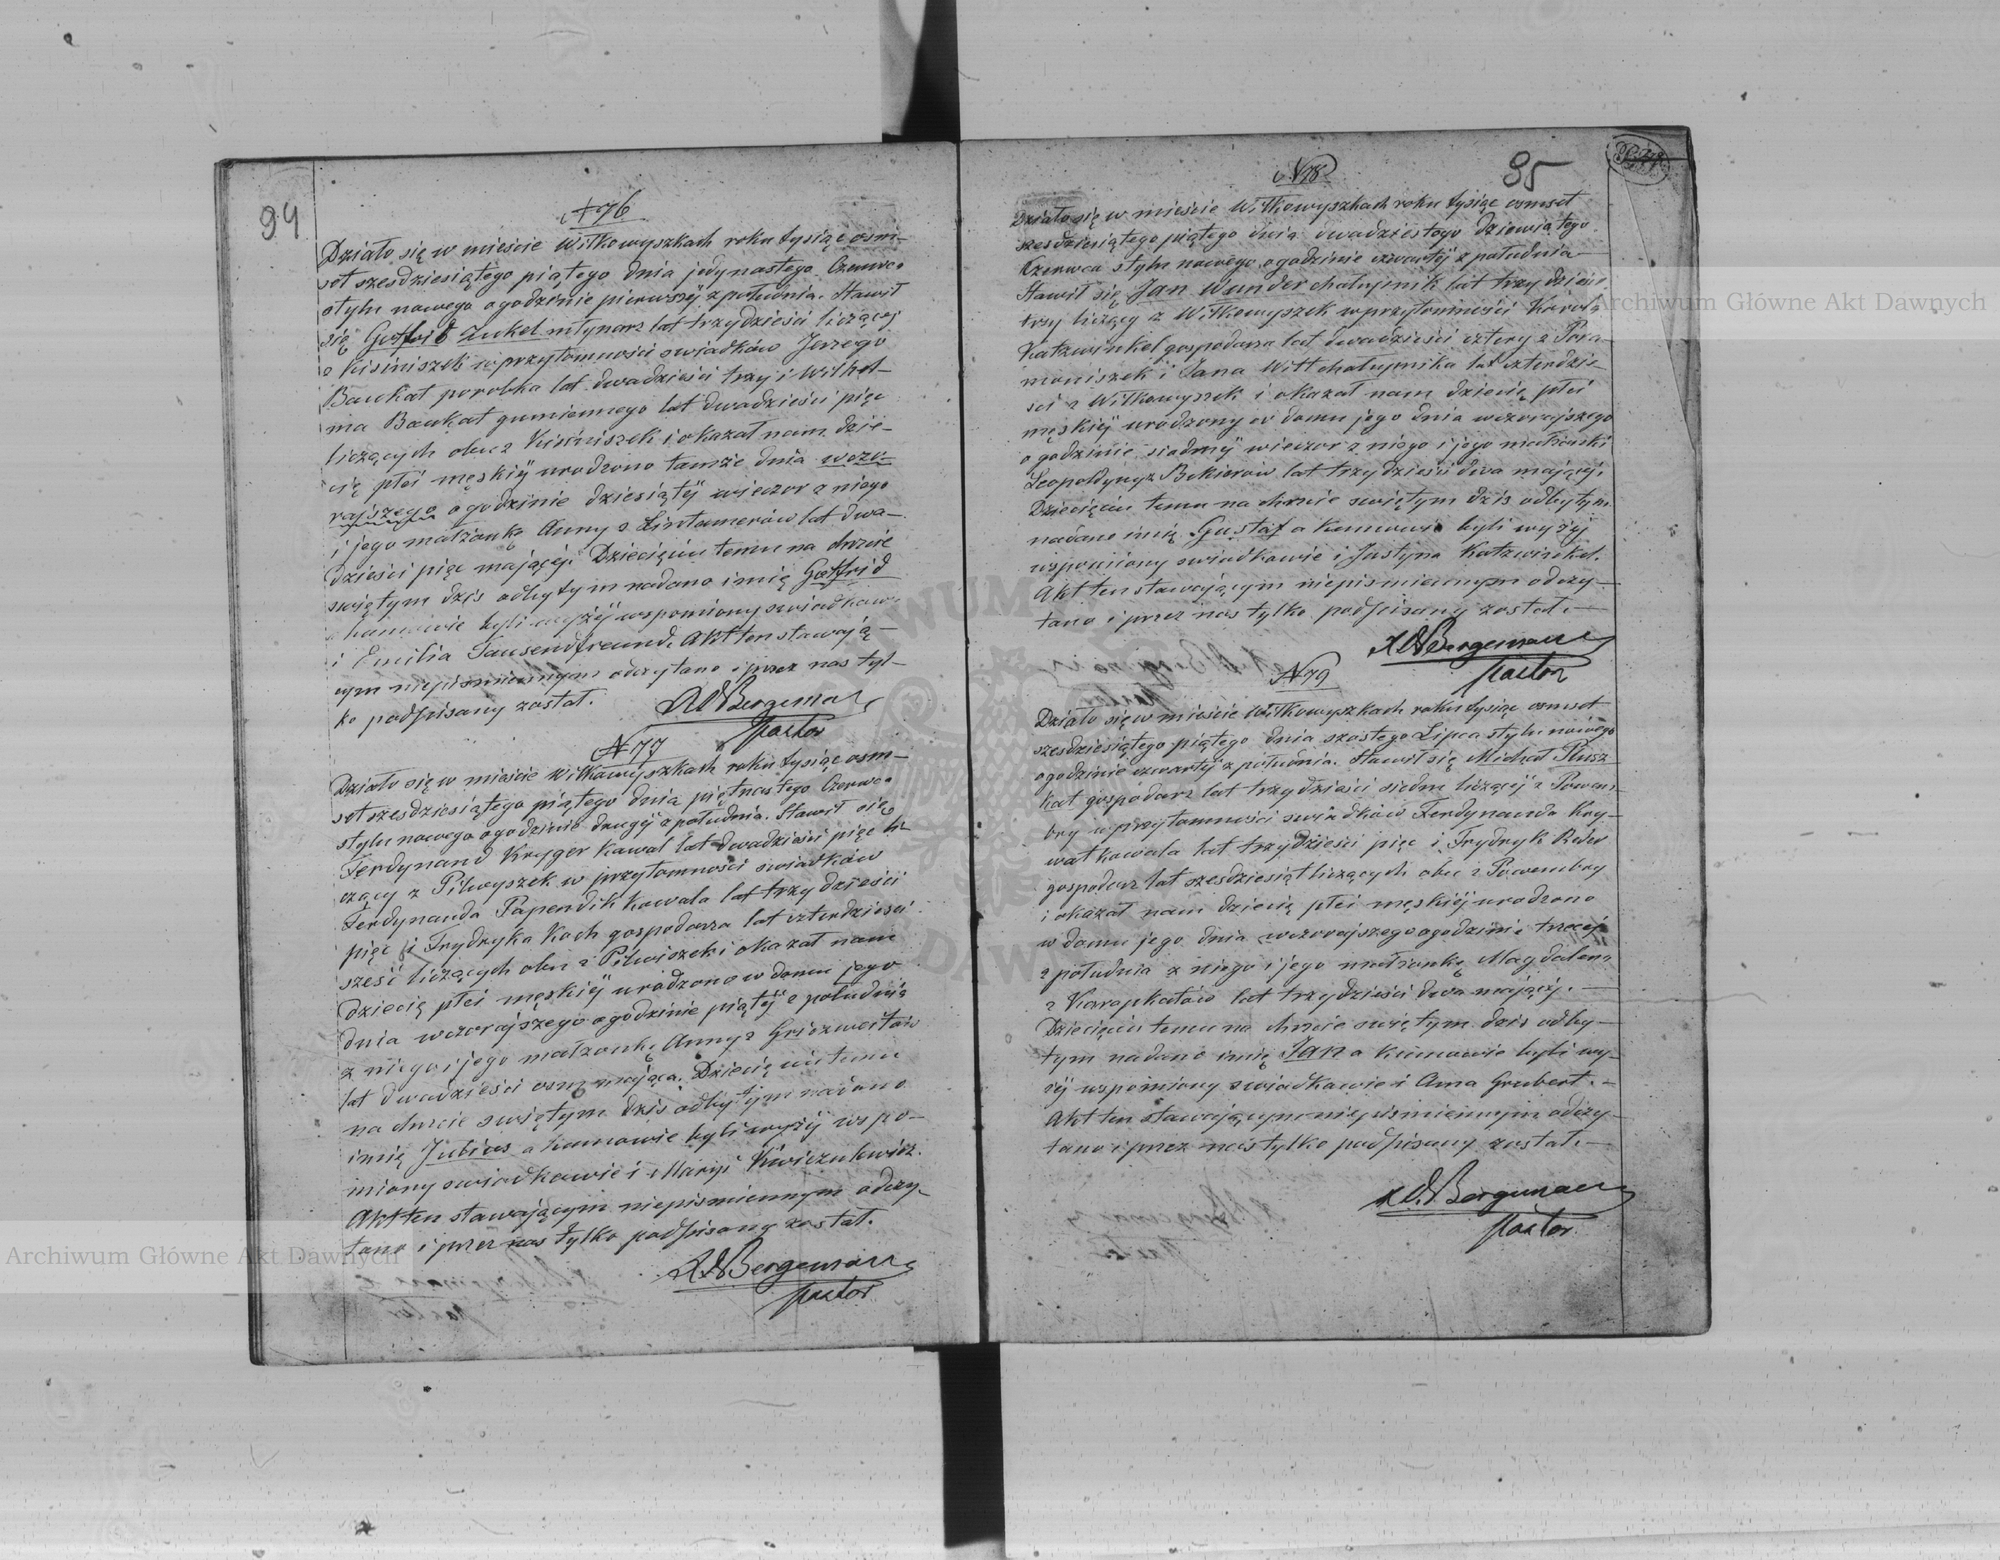 94
N 76
Działo się w mieście Wiłkowyszkach roku tysiąc osm-
set szesdziesiątego piątego dnia jedynastego Czerwca
stylu nowego o godzinie pierwszÿ z południa. Stawił
się Gotfrid Zukel młynarz lat trzydzieści liczącej
z Kisiniszek w przytomności swiadków Jerzego
Baukat porobka lat dwadzieści trzy i Wilhel-
ma Baukat gumiennego lat dwadzieści pięc
liczących obu z Kisiniszek i okazał nam dzie-
cię płci męskiÿ urodzono tamże dnia wczo-
rajszego o godzinie dziesiątÿ wieczor z niego
i jego małżonkę Anny z Lintamerów lat dwa-
dzieści pięc mającéj. Dziecięciu temu na chrzcie
swiętym dzis odbytym nadano imię Gotfrid
a kumowie byli wyżÿ wspomiony swiadkowie
i Emilia Tausendfreund. Akt ten stawają-
cym niepismiennym odczytano i przez nas tyl-
ko podpisany został.
R A Bergeman
Pastor
N 77
Działo się w mieście Wiłkowyszkach roku tysiąc osm-
set szesdziesiątego piątego dnia piętnastego Czerwca
stylu nowego o godzinie drugÿ z południa. Stawił się
Ferdynand Kryger kawal lat dwadzieści pięc li-
czący z Pilwyszek w przytomności swiadków
Ferdynanda Papendik kowala lat trzydzieści
pięc i Frydryka Koch gospodarza lat czterdzieści
szesć liczących obu z Pilwiszek i okazał nam
dziecię płci męskiÿ urodzono w domu jego
dnia wczorajszego o godzinie piątÿ z południa
z niego i jego małżonkę Anny z
lat dwadzieści osm mająca. Dziecięciu temu
na chrzcie swiętym dzis odbytym nadano
imię Julius a kumowie byli wyżÿ wspo-
miony swiadkowie i Maryi
Akt ten stawającym niepismiennym odczy-
tano i przez nas tylko podpisany został.
R A Bergeman
Pastor
95
N 78
Działo się w mieście Wiłkowyszkach roku tysiąc osmset
szesdziesiątego piątego dnia dwadziestego dziewiątego
Czerwca stylu nowego o godzinie czwartÿ z południa
Stawił się Jan Wunder chałupnik lat trzydzieści
trzy liczący z Wiłkowyszek w przytomności Karola
Katzwinkel gospodarza lat dwadzieści cztery z
moniszek i Jana Witt chałupnika lat czterdzie-
sci z Wiłkowyszek i okazał nam dziecię płci
męskiÿ urodzony w domu jego dnia wczorajszego
o godzinie siodmÿ wieczor z niego i jego małżonki
Leopoldyny z Bekierów lat trzydzieści dwa mającéj.
Dziecięciu temu na chrzcie swiętym dzis odbytym
nadano imię Gustaf a kumowie byli wyżÿ
wspomiony swiadkowie i Justyna Katzwinkel.
Akt ten stawającym niepismiennym odczy-
tano i przez nas tylko podpisany został.
R A Bergeman
Pastor
N 79
Działo się w mieście Wiłkowyszkach roku tysiąc osmset
szesdziesiątego piątego dnia szostego Lipca stylu nowego
o godzinie czwartÿ z południa. Stawił się Michał Plusz-
kat gospodarz lat trzydzieści siedm liczącÿ z Powem-
bry w przytomności swiadków Ferdynanda Kry-
wat kowala lat trzydzieści pięc i Frydryk Reder
gospodarz lat szesdziesiąt liczących obu z Powembry
i okazał nam dziecię płci męskiÿ urodzono
w domu jego dnia wczorajszego o godzinie trzeciÿ
z południa z niego i jego małżonkę Magdalena
z Karapkatów lat trzydzieści dwa mającÿ.
Dziecięciu temu na chrzcie swiętym dzis odby-
tym nadano imię Jan a kumowie byli wy-
żÿ wspomiony swiadkowie i Anna Grubert.
Akt ten stawającym niepismiennym odczy-
tano i przez nas tylko podpisany został.
R A Bergeman
Pastor
Archiwum Główne Akt Dawnych
Archiwum Główne Akt Dawnych